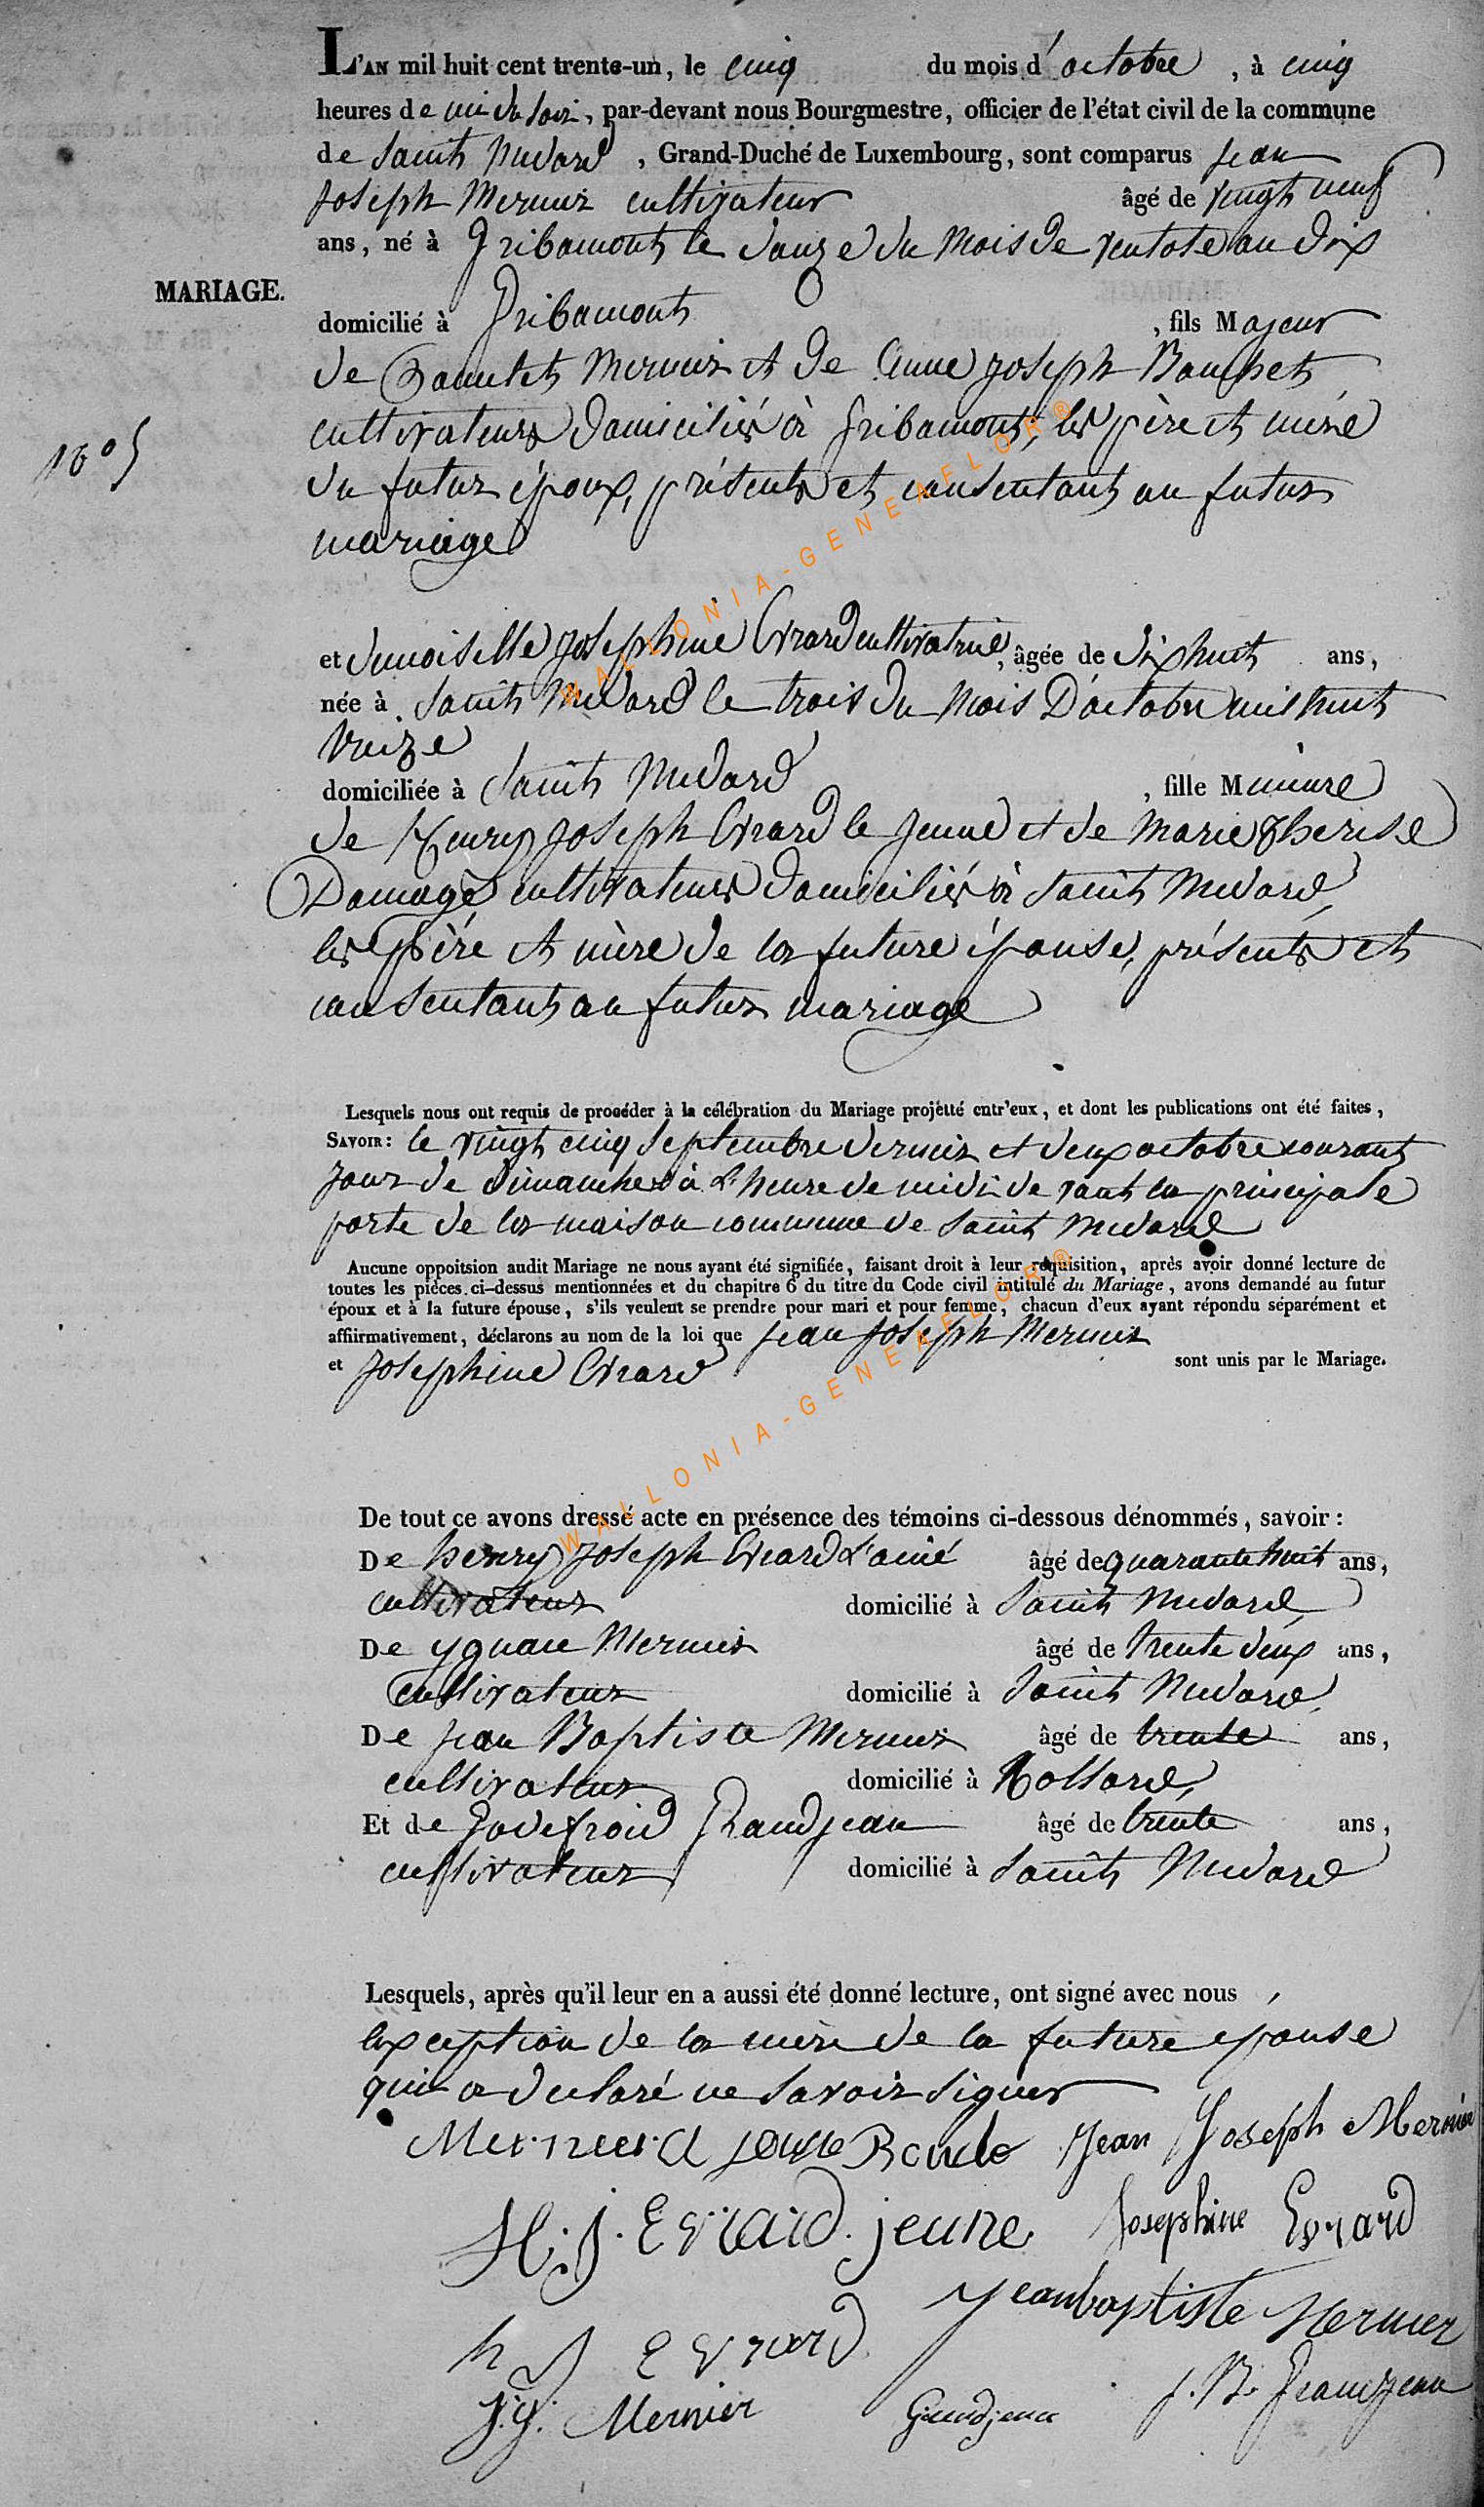 L'AN mil huit cent trente-un, le cinq du mois d'octobre, à cinq
heures de du soir, par-devant nous Bourgmestre, officier de l'état civil de la commune
de Saint Médard, Grand-Duché de Luxembourg, sont comparus jean
Joseph Mernier cultivateur âgé de vingt neuf
ans, né à Gribamont le douze du Mois de ventose an dix
MARIAGE.
domicilié à Gribamont, fils Majeur
de Mernier et de Anne joseph
cultivateurs domiciliés à gribamont, les père et mère
du futur époux, présents et consentant au futur
mariage
et demoiselle josephine Evrard cultivatrice, âgée de dix huit ans,
née à Saint Médard le trois du Mois D'octobre mil huit
treize
domiciliée à Saint Médard, fille Mineure
de Henry joseph Evrard le jeune et de Marie Therese
Damage, cultivateurs domiciliés à Saint Médard,
les père et mère de la future épouse, présents et
consentant au futur mariage
Lesquels nous ont requis de procéder à la célébration du Mariage projetté entr'eux, et dont les publications ont été faites,
SAVOIR: le vingt cinq septembre dernier et deux octobre courant
jour de dimanche à l'heure de midi devant la principale
porte de la maison commune de Saint Médard
Aucune oppoitsion audit Mariage ne nous ayant été signifiée, faisant droit à leur réquisition, après avoir donné lecture de
toutes les pièces ci-dessus mentionnées et du chapitre 6 du titre du Code civil intitulé du Mariage, avons demandé au futur
époux et à la future épouse, s'ils veulent se prendre pour mari et pour femme, chacun d'eux ayant répondu séparément et
affiirmativement, déclarons au nom de la loi que jean joseph Mernier
et josephine Evrard sont unis par le Mariage.
De tout ce avons dressé acte en présence des témoins ci-dessous dénommés, savoir:
De henry joseph Evrard L'ainé âgé de quarante huit ans,
cultivateur domicilié à Saint Médard,
De ygnace Mernier âgé de trente deux ans,
cultivateur domicilié à Saint Médard,
De jean Baptiste Mernier âgé de trente ans,
cultivateur domicilié à
Et de Godefroid Grandjean âgé de trente ans,
cultivateur domicilié à Saint Médard
Lesquels, après qu'il leur en a aussi été donné lecture, ont signé avec nous
exception de la mère de la future epouse
qui a declaré ne savoir signer
Jean Joseph Mernier
H. J. Evrard jeune Josephine Evrard
h J Evrard Jeanbaptiste Mernier
J. Y. Mernier Grandjean
WALLONIA-GENEAELOR®
WALLONIA-GENEAELOR®